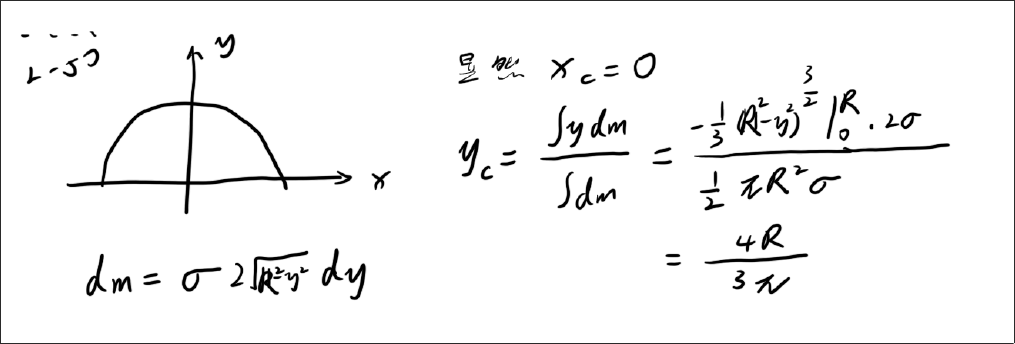 y
x
dm = σ 2√(R²-y²) dy
显然 x_c = 0
y_c = ∫y dm / ∫dm = -1/3 (R²-y²)^(3/2) |₀^R · 2σ / (1/2 πR²σ)
= 4R / 3π